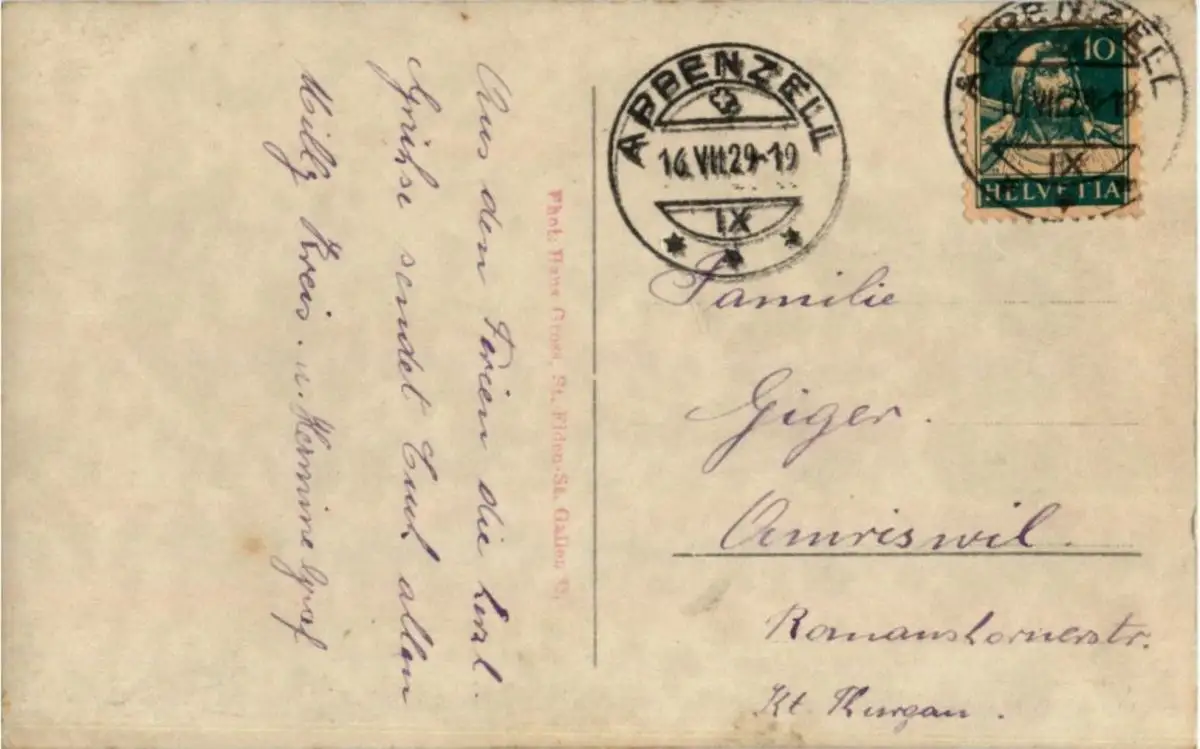 Aus den Ferien die herzl.
Grüsse sendet Euch allen
Milly Kreis. u. Hermine Graf
Phot: Hans Gross, St. Fiden-St. Gallen O.
APPENZELL
16.VII.29-19
IX
APPENZELL
16.VII.29-19
IX
10
HELVETIA
Familie
Giger.
Amriswil.
Romanshornerstr.
Kt. Thurgau.